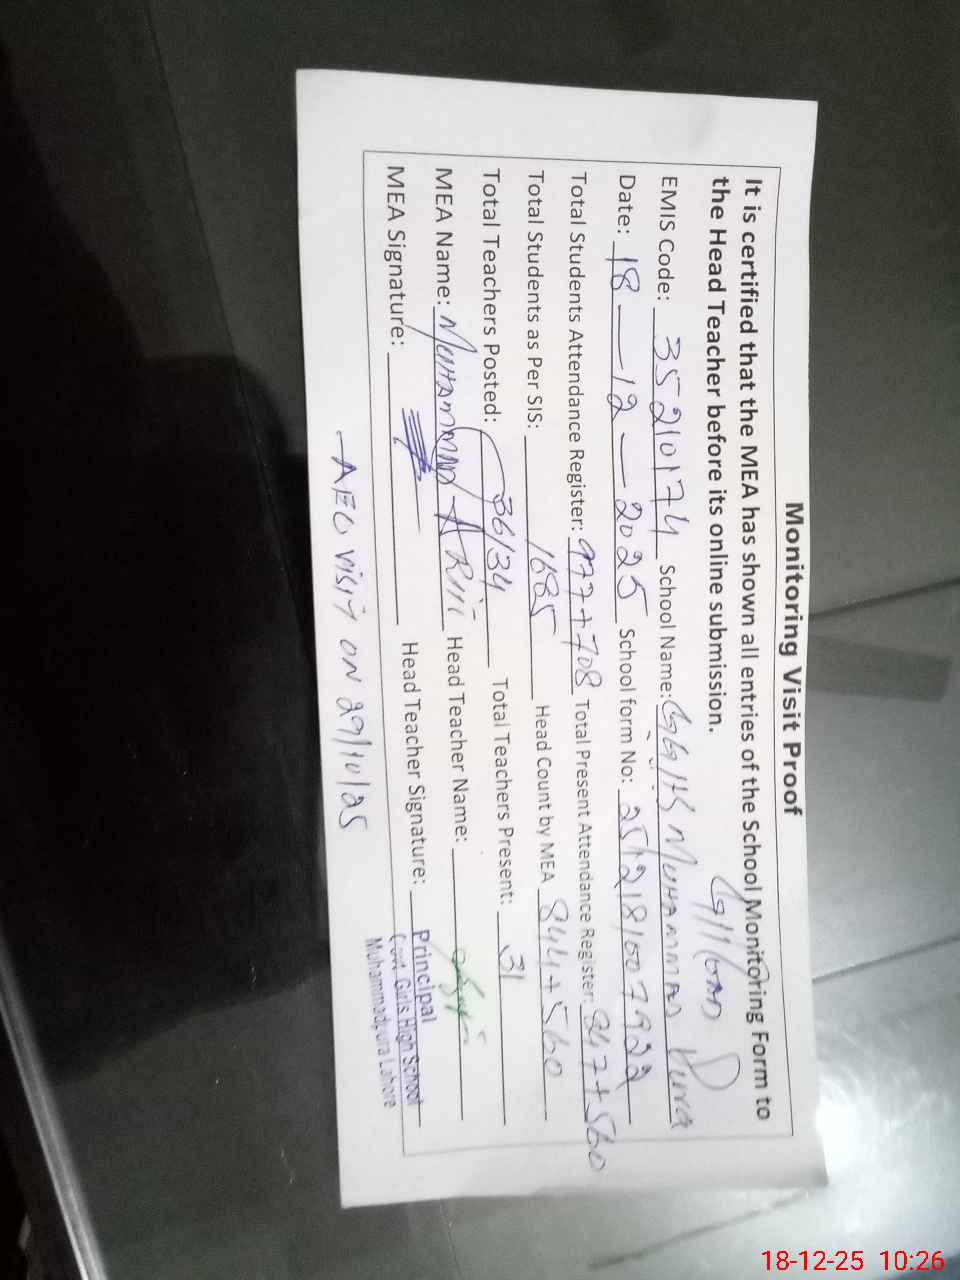 Monitoring Visit Proof
It is certified that the MEA has shown all entries of the School Monitoring Form to
the Head Teacher before its online submission.
EMIS Code: 35210174 School Name: GGHS MUHAMMAD Pura
Date: 18-12-2025 School form No: 2512181007922
Total Students Attendance Register: 977+708 Total Present Attendance Register: 847+560
Total Students as Per SIS: 1685 Head Count by MEA 844+560
Total Teachers Posted: 36/34 Total Teachers Present: 31
MEA Name: MUHAMMAD Head Teacher Name:
MEA Signature: Head Teacher Signature:
Principal
Govt. Girls High School
Muhammadpura Lahore
-AEO VISIT ON 29/10/25
18-12-25 10:26